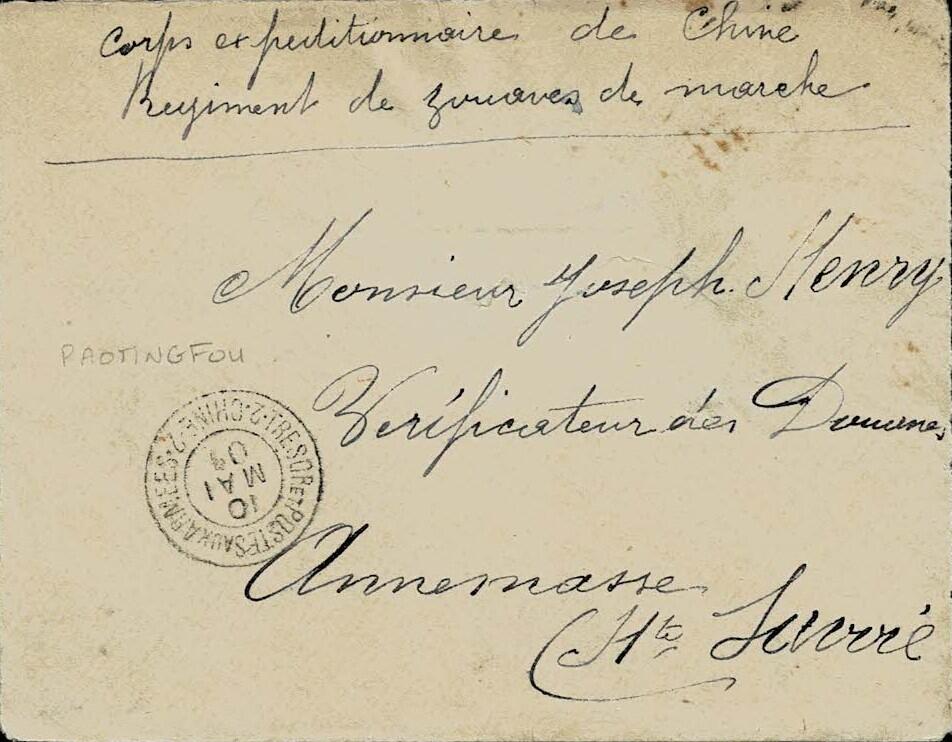 Corps expeditionnaire de Chine
Regiment de zouaves de marche
Monsieur Joseph Henry
PAOTINGFOU
Verificateur des Douanes
TRESOR ET POSTES AUX ARMEES · CHINE 2 ·
10
MAI
01
Annemasse
Hte Savoie